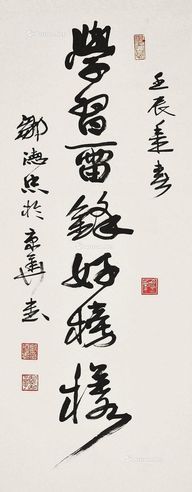 壬辰春
學習雷鋒好榜樣
鄒德忠於京華書